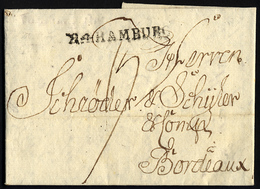 R.4.HAMBURG
Herren
Schröder & Schÿler
& Comp
Bordeaux